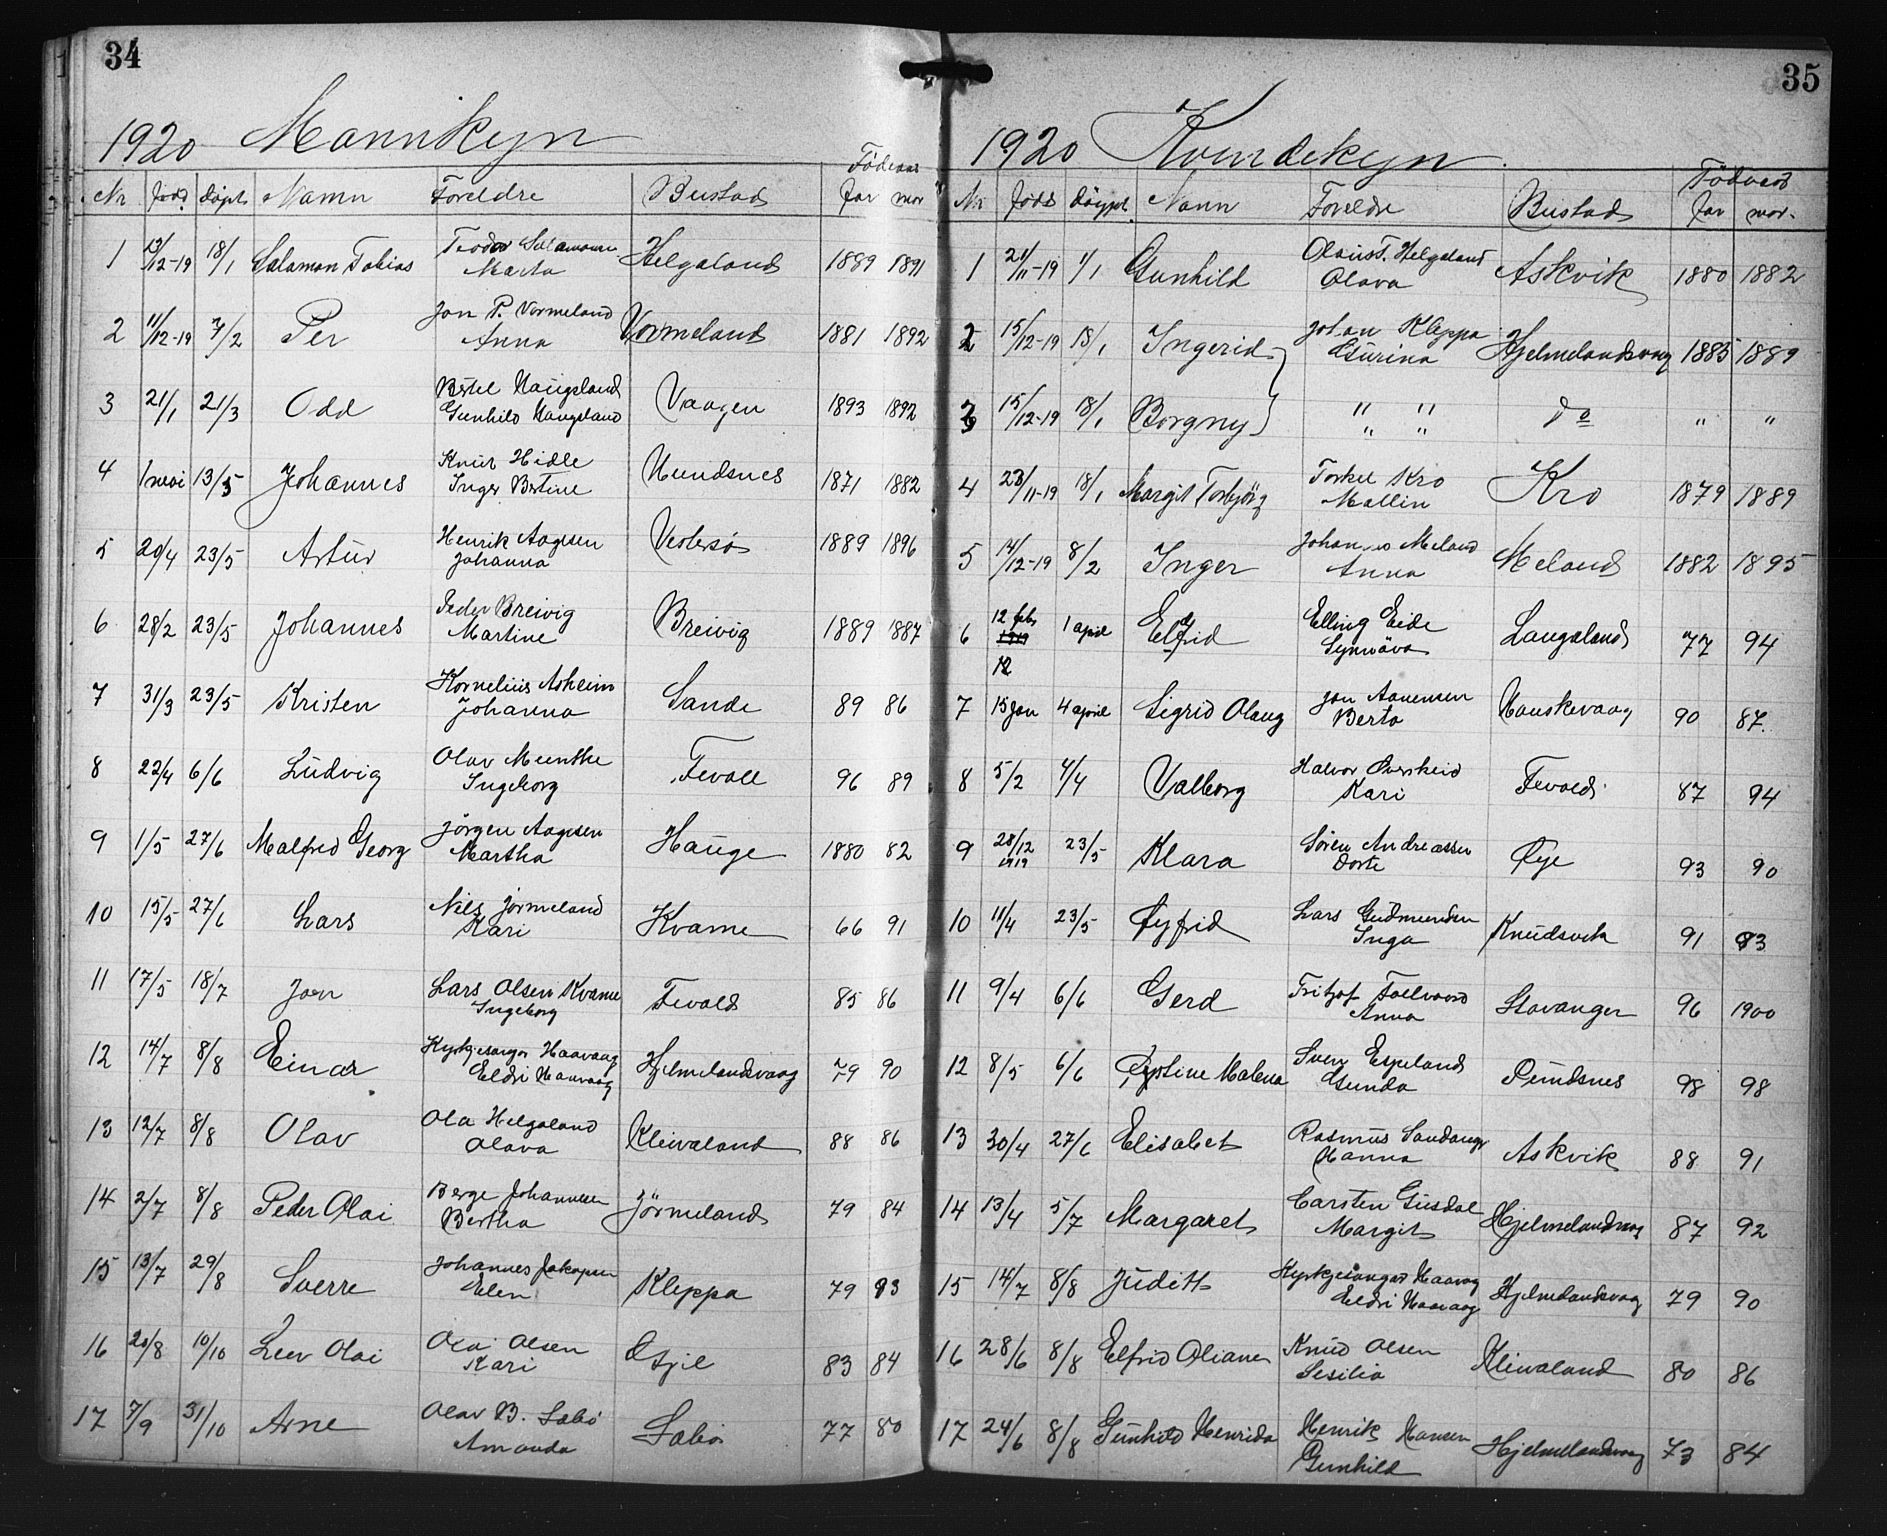 34
1920 Mannkyn
Fødeaar
Nr Född Döpt Namn Foreldre Bustad far mor
1 13/12-19 18/1 Salamon Tobias Teodor Salamonsen Helgaland 1889 1891
Marta
2 11/12-19 7/2 Per Jon P. Vormeland Vormeland 1881 1892
Anna
3 21/1 21/3 Odd Bertel Haugsland Vaagen 1893 1892
Gunhild Haugsland
4 1 mai 13/5 Johannes Knut Hidle Hundsnes 1871 1882
Inger Bertine
5 20/4 23/5 Artur Henrik Aagesen Vestersø 1889 1896
Johanna
6 28/2 23/5 Johannes Peder Breivig Breivig 1889 1887
Martine
7 31/3 23/5 Kristen Kornelius Asheim Sande 89 86
Johanna
8 22/4 6/6 Ludvig Olav Munthe Fevoll 96 89
Ingeborg
9 1/5 27/6 Malfred Georg Jörgen Aagesen Hauge 1880 82
Martha
10 15/5 27/6 Lars Nils Jörmeland Kvame 66 91
Kari
11 17/5 18/7 Jon Lars Olsen Kvame Fevold 85 86
Ingeborg
12 14/7 8/8 Einar Kyrkjesangar Haavaag Hjelmelandsvaag 79 90
Eldri Haavaag
13 12/7 8/8 Olav Ola Helgaland Kleivaland 88 86
Olava
14 2/7 8/8 Peder Olai Berge Johannesen Jörmeland 79 84
Bertha
15 13/7 29/8 Sverre Johannes Jakopsen Kleppa 79 93
Elen
16 20/8 10/10 Leiv Olai Ola Olsen Gjil 83 84
Kari
17 7/9 31/10 Arne Olav B. Sæbö Sæbö 77 80
Amanda
35
1920 Kvindekyn.
Fødeaar
Nr Född Döypt. Namn Foreldre Bustad far mor.
1 21/11-19 1/1 Gunhild Olaus T. Helgaland Askvik 1880 1882
Olava
2 15/12-19 18/1 Ingerid Johan Kleppa Hjelmelandsvaag 1885 1889
Gurina
3 15/12-19 18/1 Borgny " " do " "
" "
4 23/11-19 18/1 Margit Torbjörg Torkel Kro Kro 1879 1889
Mallin
5 14/12-19 8/2 Inger Johannes Meland Meland 1882 1895
Anna
6 12 feb 1919 1 april Elfrid Elling Eide Laugaland 77 94
12 Synnöva
7 15 jan 4 april Sigrid Olaug Jon Aanensen Hauskevaag 90 87.
Berta
8 5/2 4/4 Valborg Halvor Øverskeid Fevold 87 94
Kari
9 28/12 1919 23/5 Klara Sören Andreassen Øye 93 90
Dorte
10 11/4 23/5 Øyfrid Lars Gudmundsen Knudsvik 91 93
Inga
11 9/4 6/6 Gerd Fritjof Tollvoord Stavanger 96 1900
Anna
12 8/5 6/6 Øystine Malena Sven Espeland Pundsnes 98 98
Gunda
13 30/4 27/6 Elisabet Rasmus Sandanger Askvik 88 91
Hanna
14 13/4 5/7 Margaret Carsten Gusdal Hjelmelandsvaag 87 92
Margit
15 14/7 8/8 Judith Kyrkjesangar Haavaag Hjelmelandsvaag 79 90
Eldri Haavaag
16 28/6 8/8 Elfrid Oliane Knud Olsen Kleivaland 80 86
Sesilia
17 24/6 8/8 Gunhild Henrida Henrik Hansen Hjelmelandsvaag 73 84
Gunhild